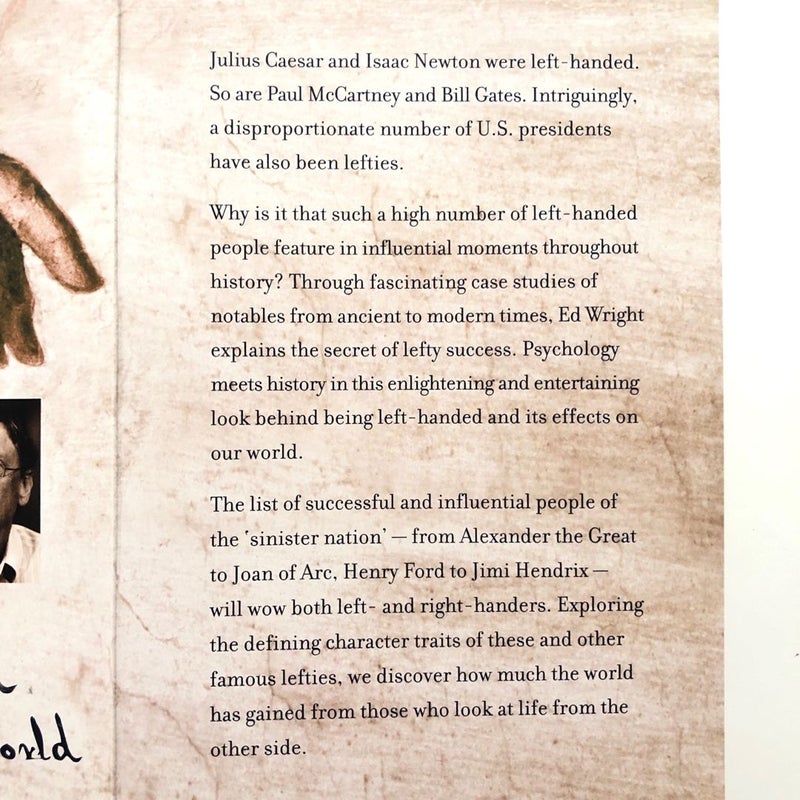 Julius Caesar and Isaac Newton were left-handed.
So are Paul McCartney and Bill Gates. Intriguingly,
a disproportionate number of U.S. presidents
have also been lefties.
Why is it that such a high number of left-handed
people feature in influential moments throughout
history? Through fascinating case studies of
notables from ancient to modern times, Ed Wright
explains the secret of lefty success. Psychology
meets history in this enlightening and entertaining
look behind being left-handed and its effects on
our world.
The list of successful and influential people of
the 'sinister nation' — from Alexander the Great
to Joan of Arc, Henry Ford to Jimi Hendrix —
will wow both left- and right-handers. Exploring
the defining character traits of these and other
famous lefties, we discover how much the world
has gained from those who look at life from the
other side.
orld